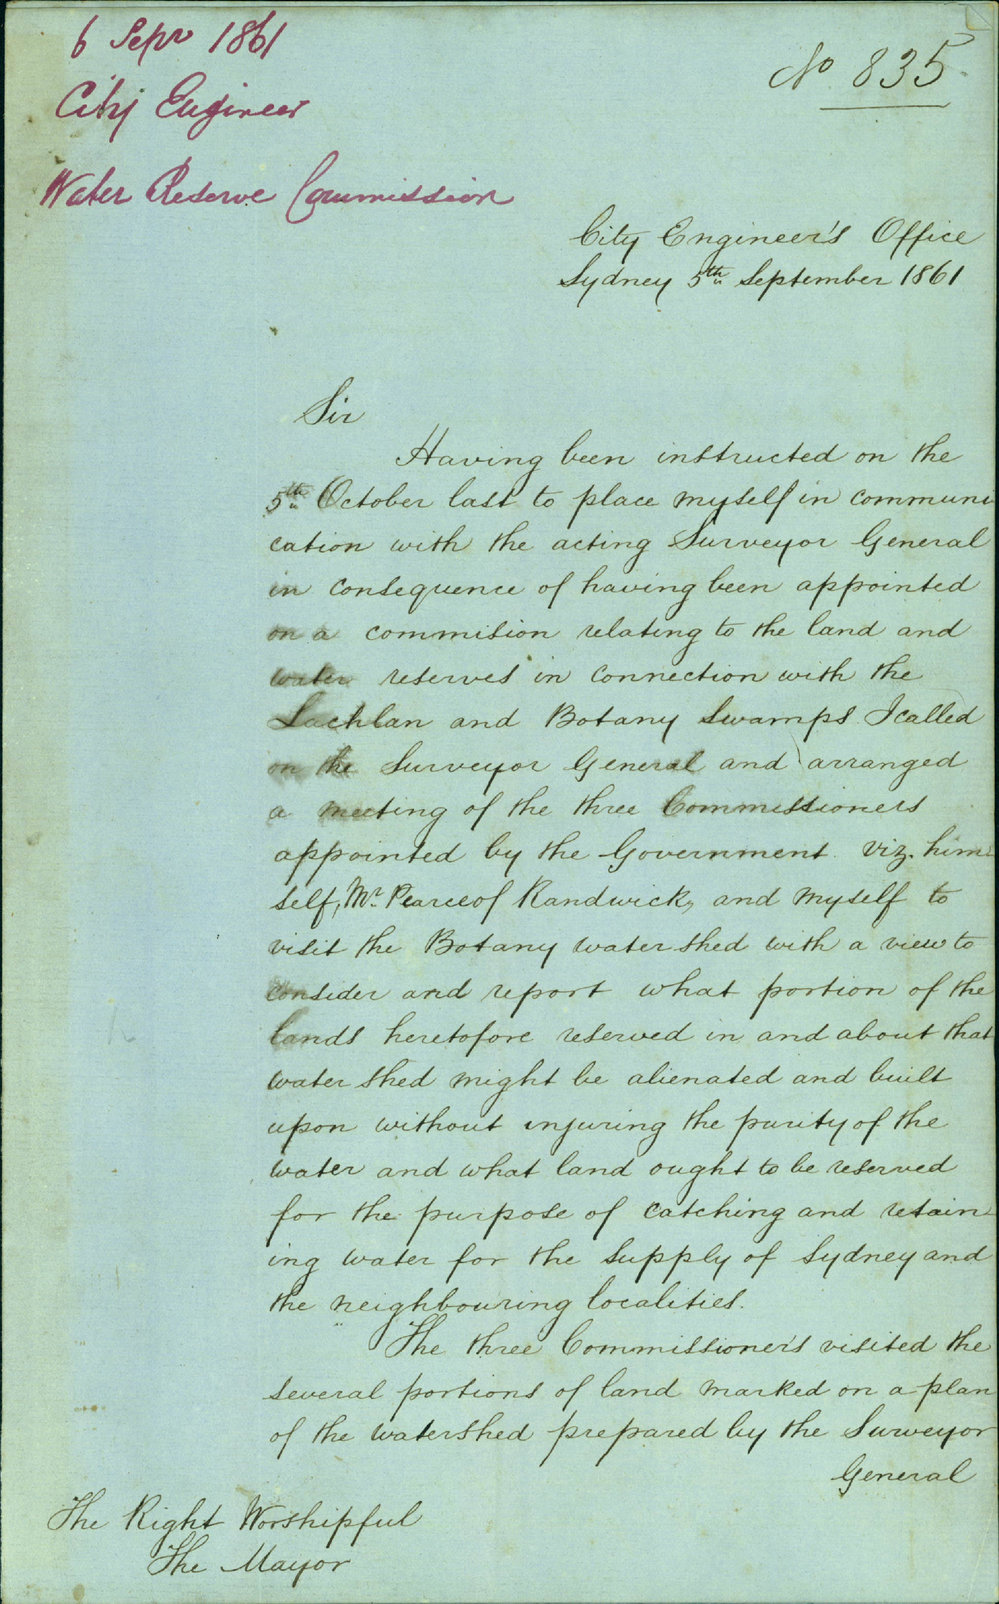 6 Sepr 1861
City Engineer
Water Reserve Commission
No 835
City Engineer's Office
Sydney 5th September 1861
Sir
Having been instructed on the
5th October last to place myself in communi
cation with the acting Surveyor General
in consequence of having been appointed
on a commision relating to the land and
water reserves in connection with the
Lachlan and Botany Swamps I called
on the Surveyor General and arranged
a meeting of the three Commissioners
appointed by the Government viz. him
self, Mr. Pearce of Randwick, and myself to
visit the Botany water shed with a view to
consider and report what portion of the
lands heretofore reserved in and about that
water shed might be alienated and built
upon without injuring the purity of the
water and what land ought to be reserved
for the purpose of catching and retain-
ing water for the supply of Sydney and
the neighbouring localities.
The three Commissioners visited the
several portions of land marked on a plan
of the watershed prepared by the Surveyor
General
The Right Worshipful
The Mayor